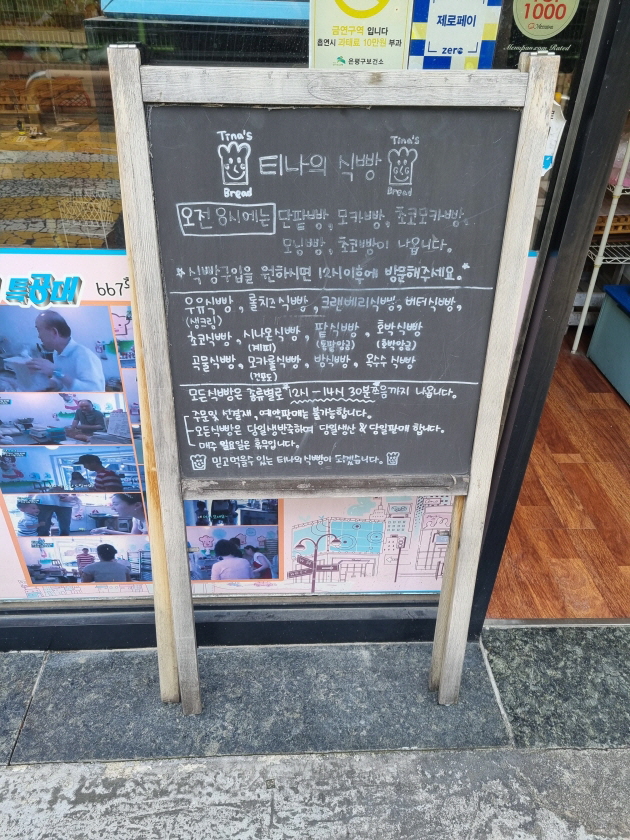 금연구역 입니다
흡연시 과태료 10만원 부과
은평구보건소
제로페이
zero
1000
Menupan.com Rated
특공대 667회
Tina's
Bread
티나의 식빵
Tina's
Bread
오전 8시에는 단팥빵, 모카빵, 초코모카빵,
모닝빵, 초코빵이 나옵니다.
* 식빵구입을 원하시면 12시이후에 방문해주세요.*
우유식빵, 롤치즈식빵, 크랜베리식빵, 버터식빵,
(생크림)
초코식빵, 시나몬식빵, 팥식빵, 호박식빵
(계피) (통팥앙금) (호박앙금)
곡물식빵, 모카롤식빵, 밤식빵, 옥수식빵
(건포도)
모든식빵은 종류별로 12시-14시 30분쯤까지 나옵니다.
주문및 선결재, 예약판매는 불가능합니다.
모든식빵은 당일생반죽하며 당일생산 & 당일판매 합니다.
매주 월요일은 휴무입니다.
믿고먹을수 있는 티나의식빵이 되겠습니다.